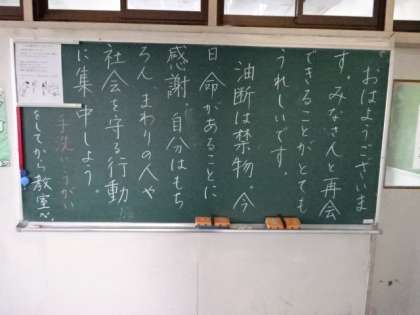 おはようございま
す。みなさんと再会
できることがとても
うれしいです。
油断は禁物。今
日 命があることに
感謝。自分はもち
ろん まわりの人や
社会を守る行動
に集中しよう。
手洗い、うがい
をしてから教室へ